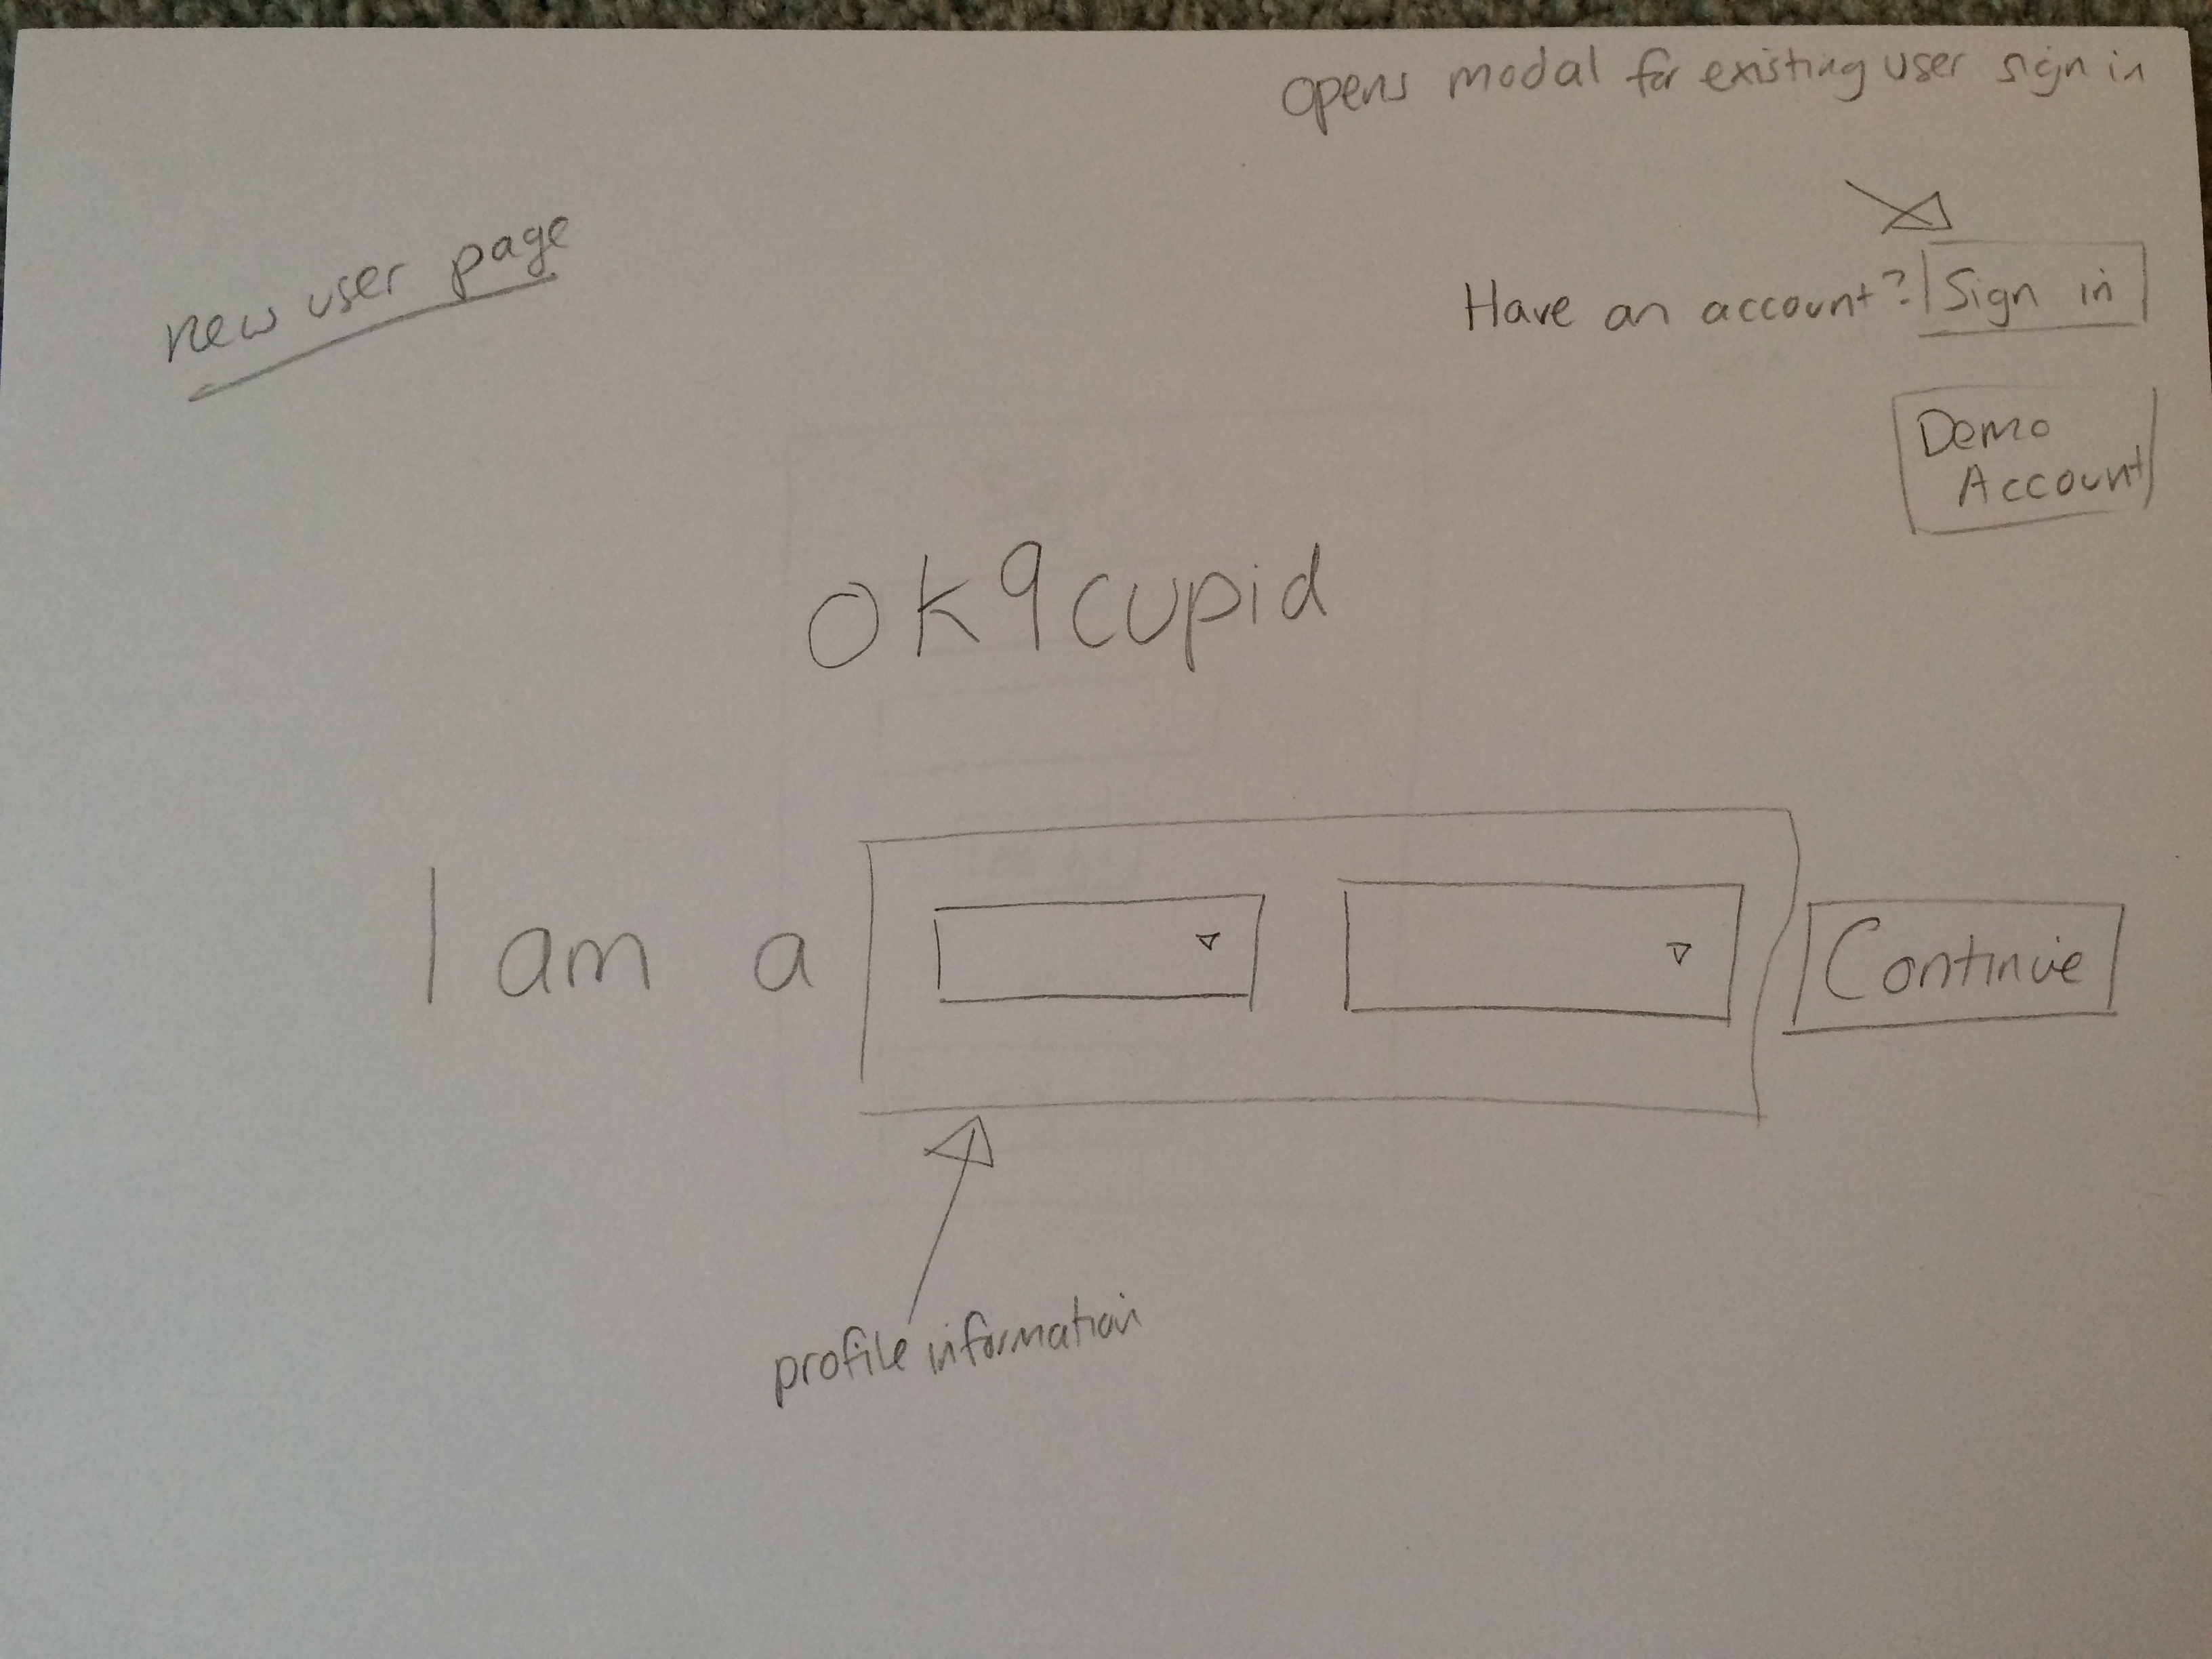 opens modal for existing user sign in
new user page
Have an account? Sign in
Demo
Account
ok9cupid
I am a
Continue
profile information